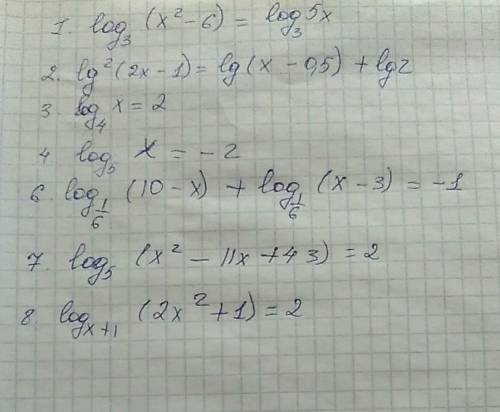 1. log₃ (x² - 6) = log₃ 5x
2. lg² (2x - 1) = lg (x - 0,5) + lg 2
3. log₄ x = 2
4 log₅ x = - 2
6. log_{1/6} (10 - x) + log_{1/6} (x - 3) = -1
7. log₅ (x² - 11x + 43) = 2
8. log_{x+1} (2x² + 1) = 2